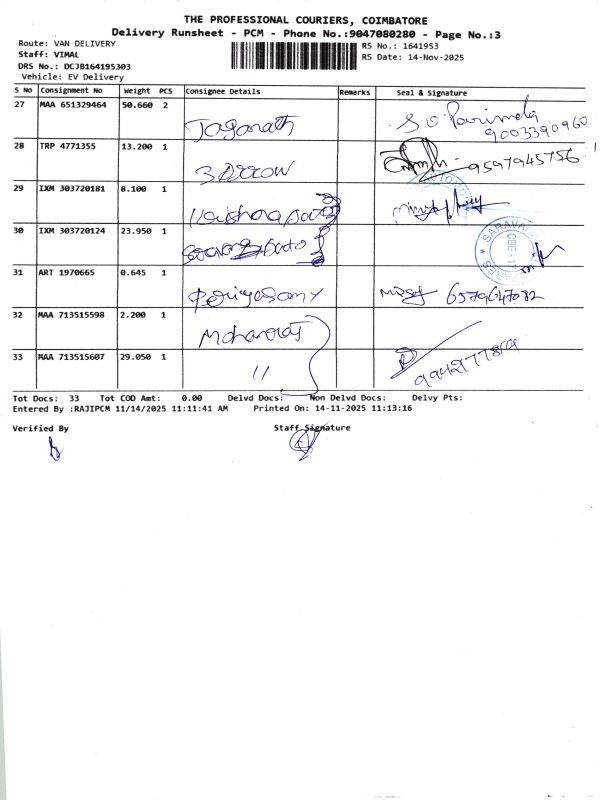 THE PROFESSIONAL COURIERS, COIMBATORE
Delivery Runsheet - PCM - Phone No.:9047080280 - Page No.:3
Route: VAN DELIVERY
Staff: VIMAL
DRS No.: DCJB164195303
Vehicle: EV Delivery
RS No.: 1641953
RS Date: 14-Nov-2025
S No Consignment No Weight PCS Consignee Details Remarks Seal & Signature
27 MAA 651329464 50.660 2 Jaganath 9003390960
28 TRP 4771355 13.200 1 3 Arrow 9597945756
29 IXM 303720181 8.100 1
30 IXM 303720124 23.950 1
31 ART 1970665 0.645 1 Periyasamy
32 MAA 713515598 2.200 1 Mohanraj
33 MAA 713515607 29.050 1 11
Tot Docs: 33 Tot COD Amt: 0.00 Delvd Docs: Non Delvd Docs: Delvy Pts:
Entered By :RAJIPCM 11/14/2025 11:11:41 AM Printed On: 14-11-2025 11:13:16
Verified By Staff Signature